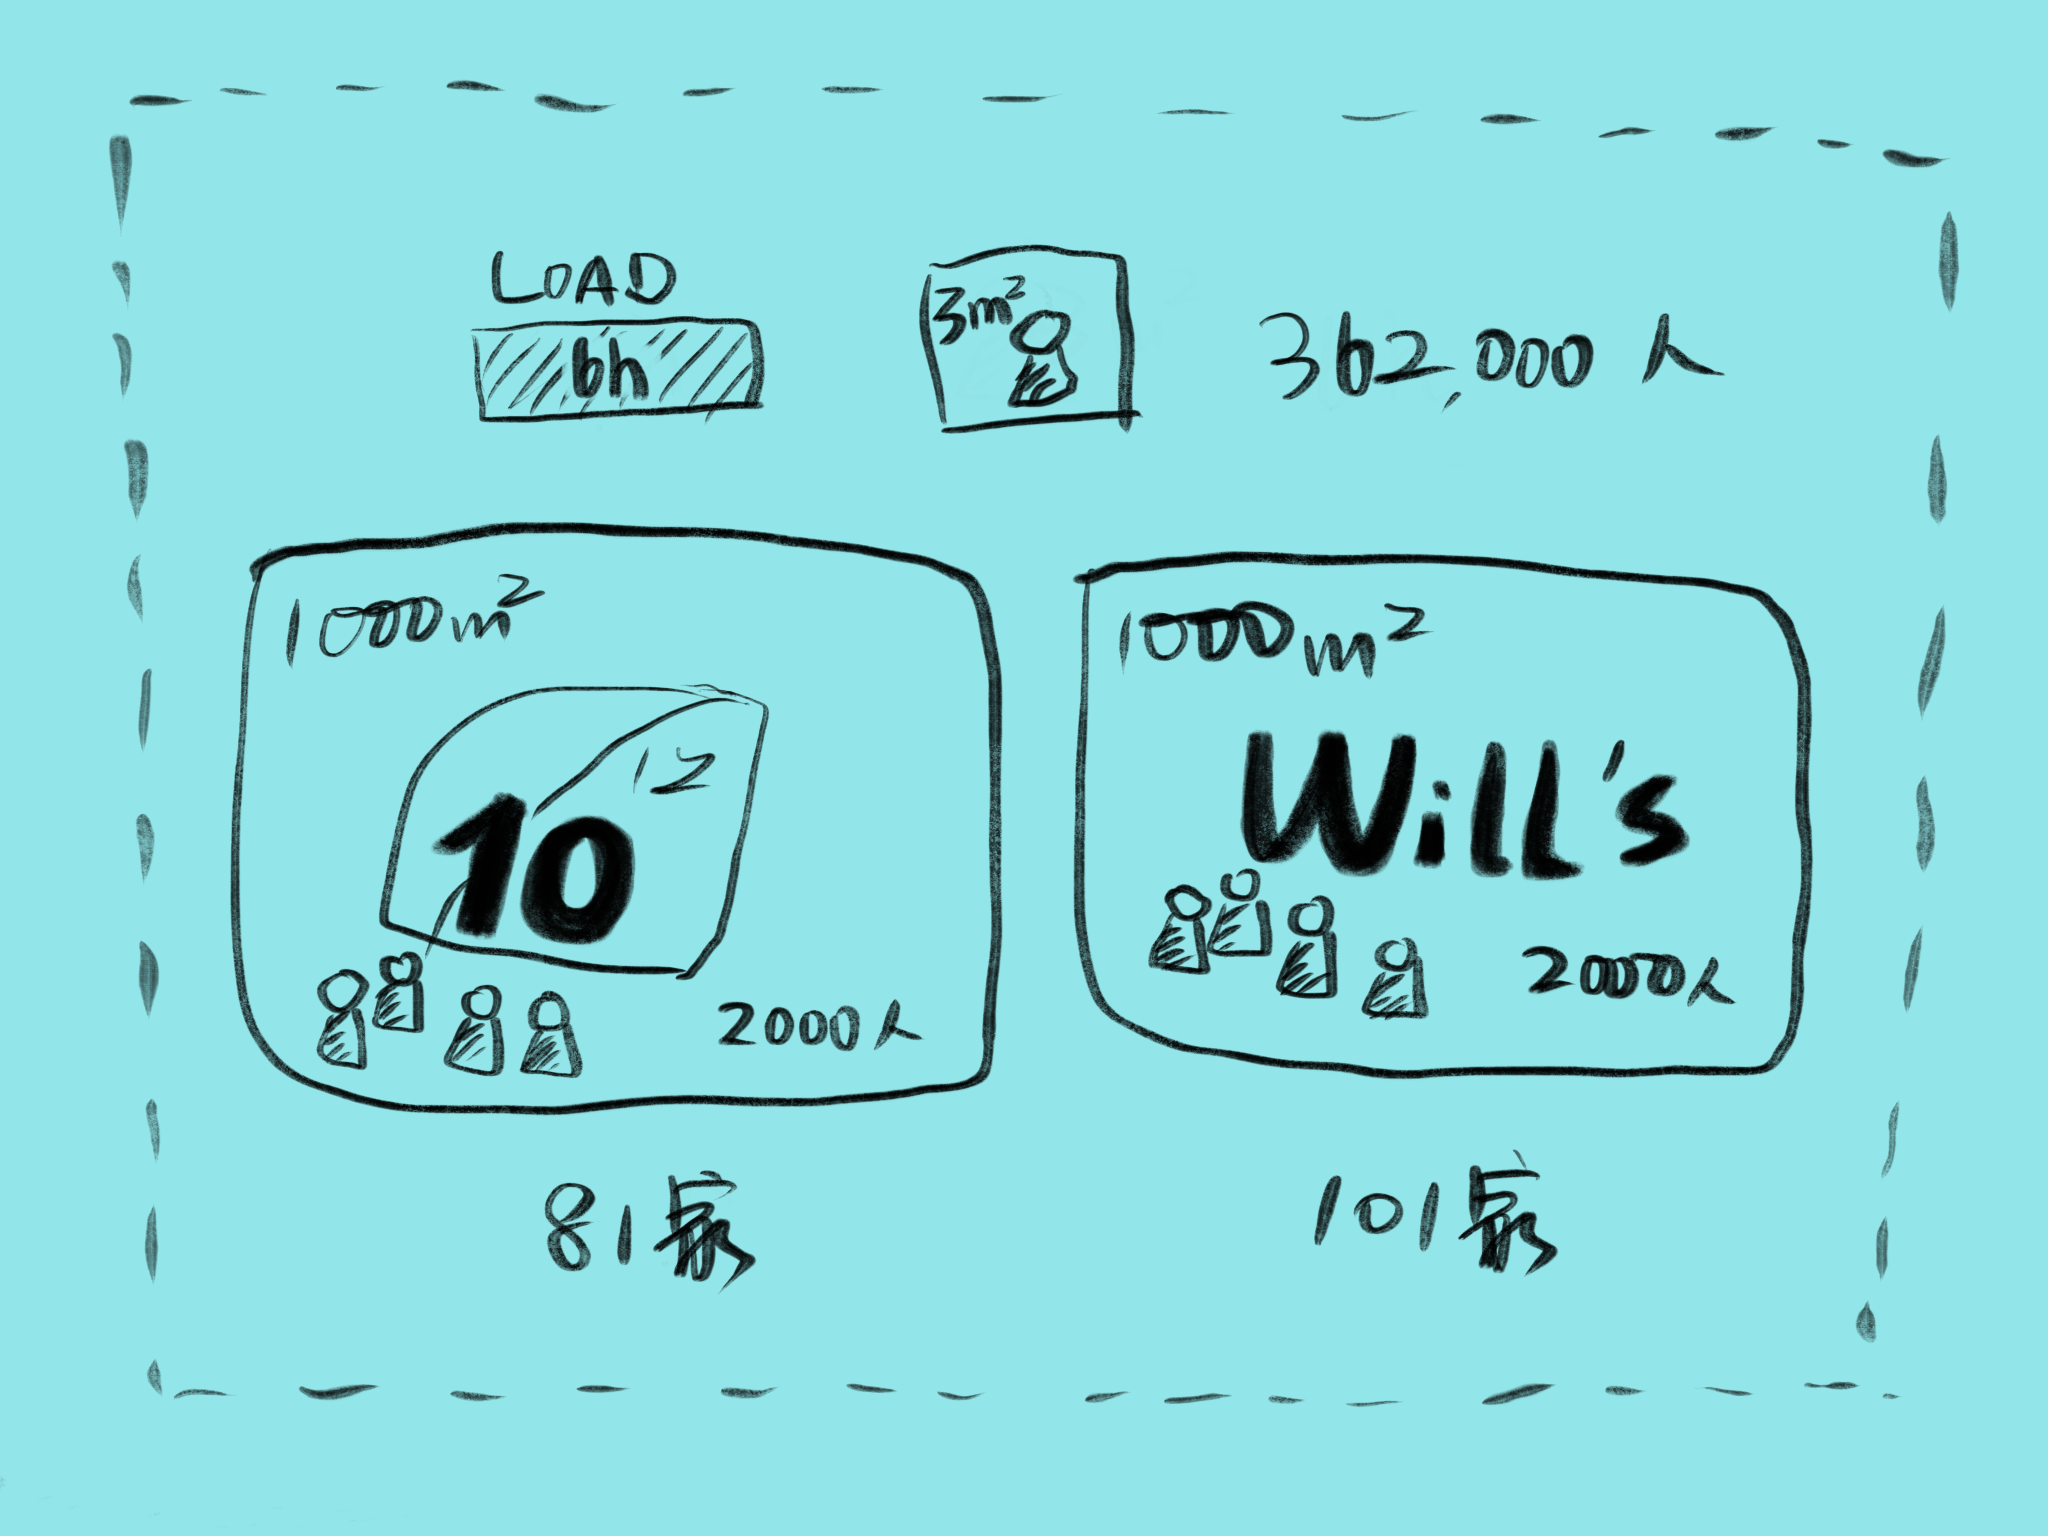 LOAD
6h
3m²
362,000人
1000m²
12
10
2000人
81家
1000m²
Will's
2000人
101家